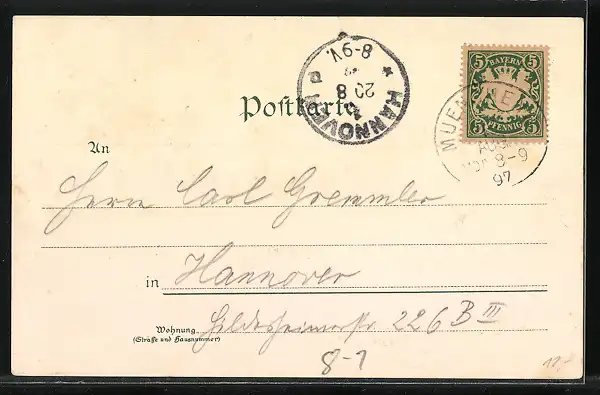 5 BAYERN 5
5 PFENNIG 5
MUEN
AUG
8-9
97
HANNOVER
8-9V.
20
8
Postkarte
An
Herrn Carl Gremmler
in Hannover
Wohnung
(Straße und Hausnummer)
Hildesheimerstr 226 B III
8-1